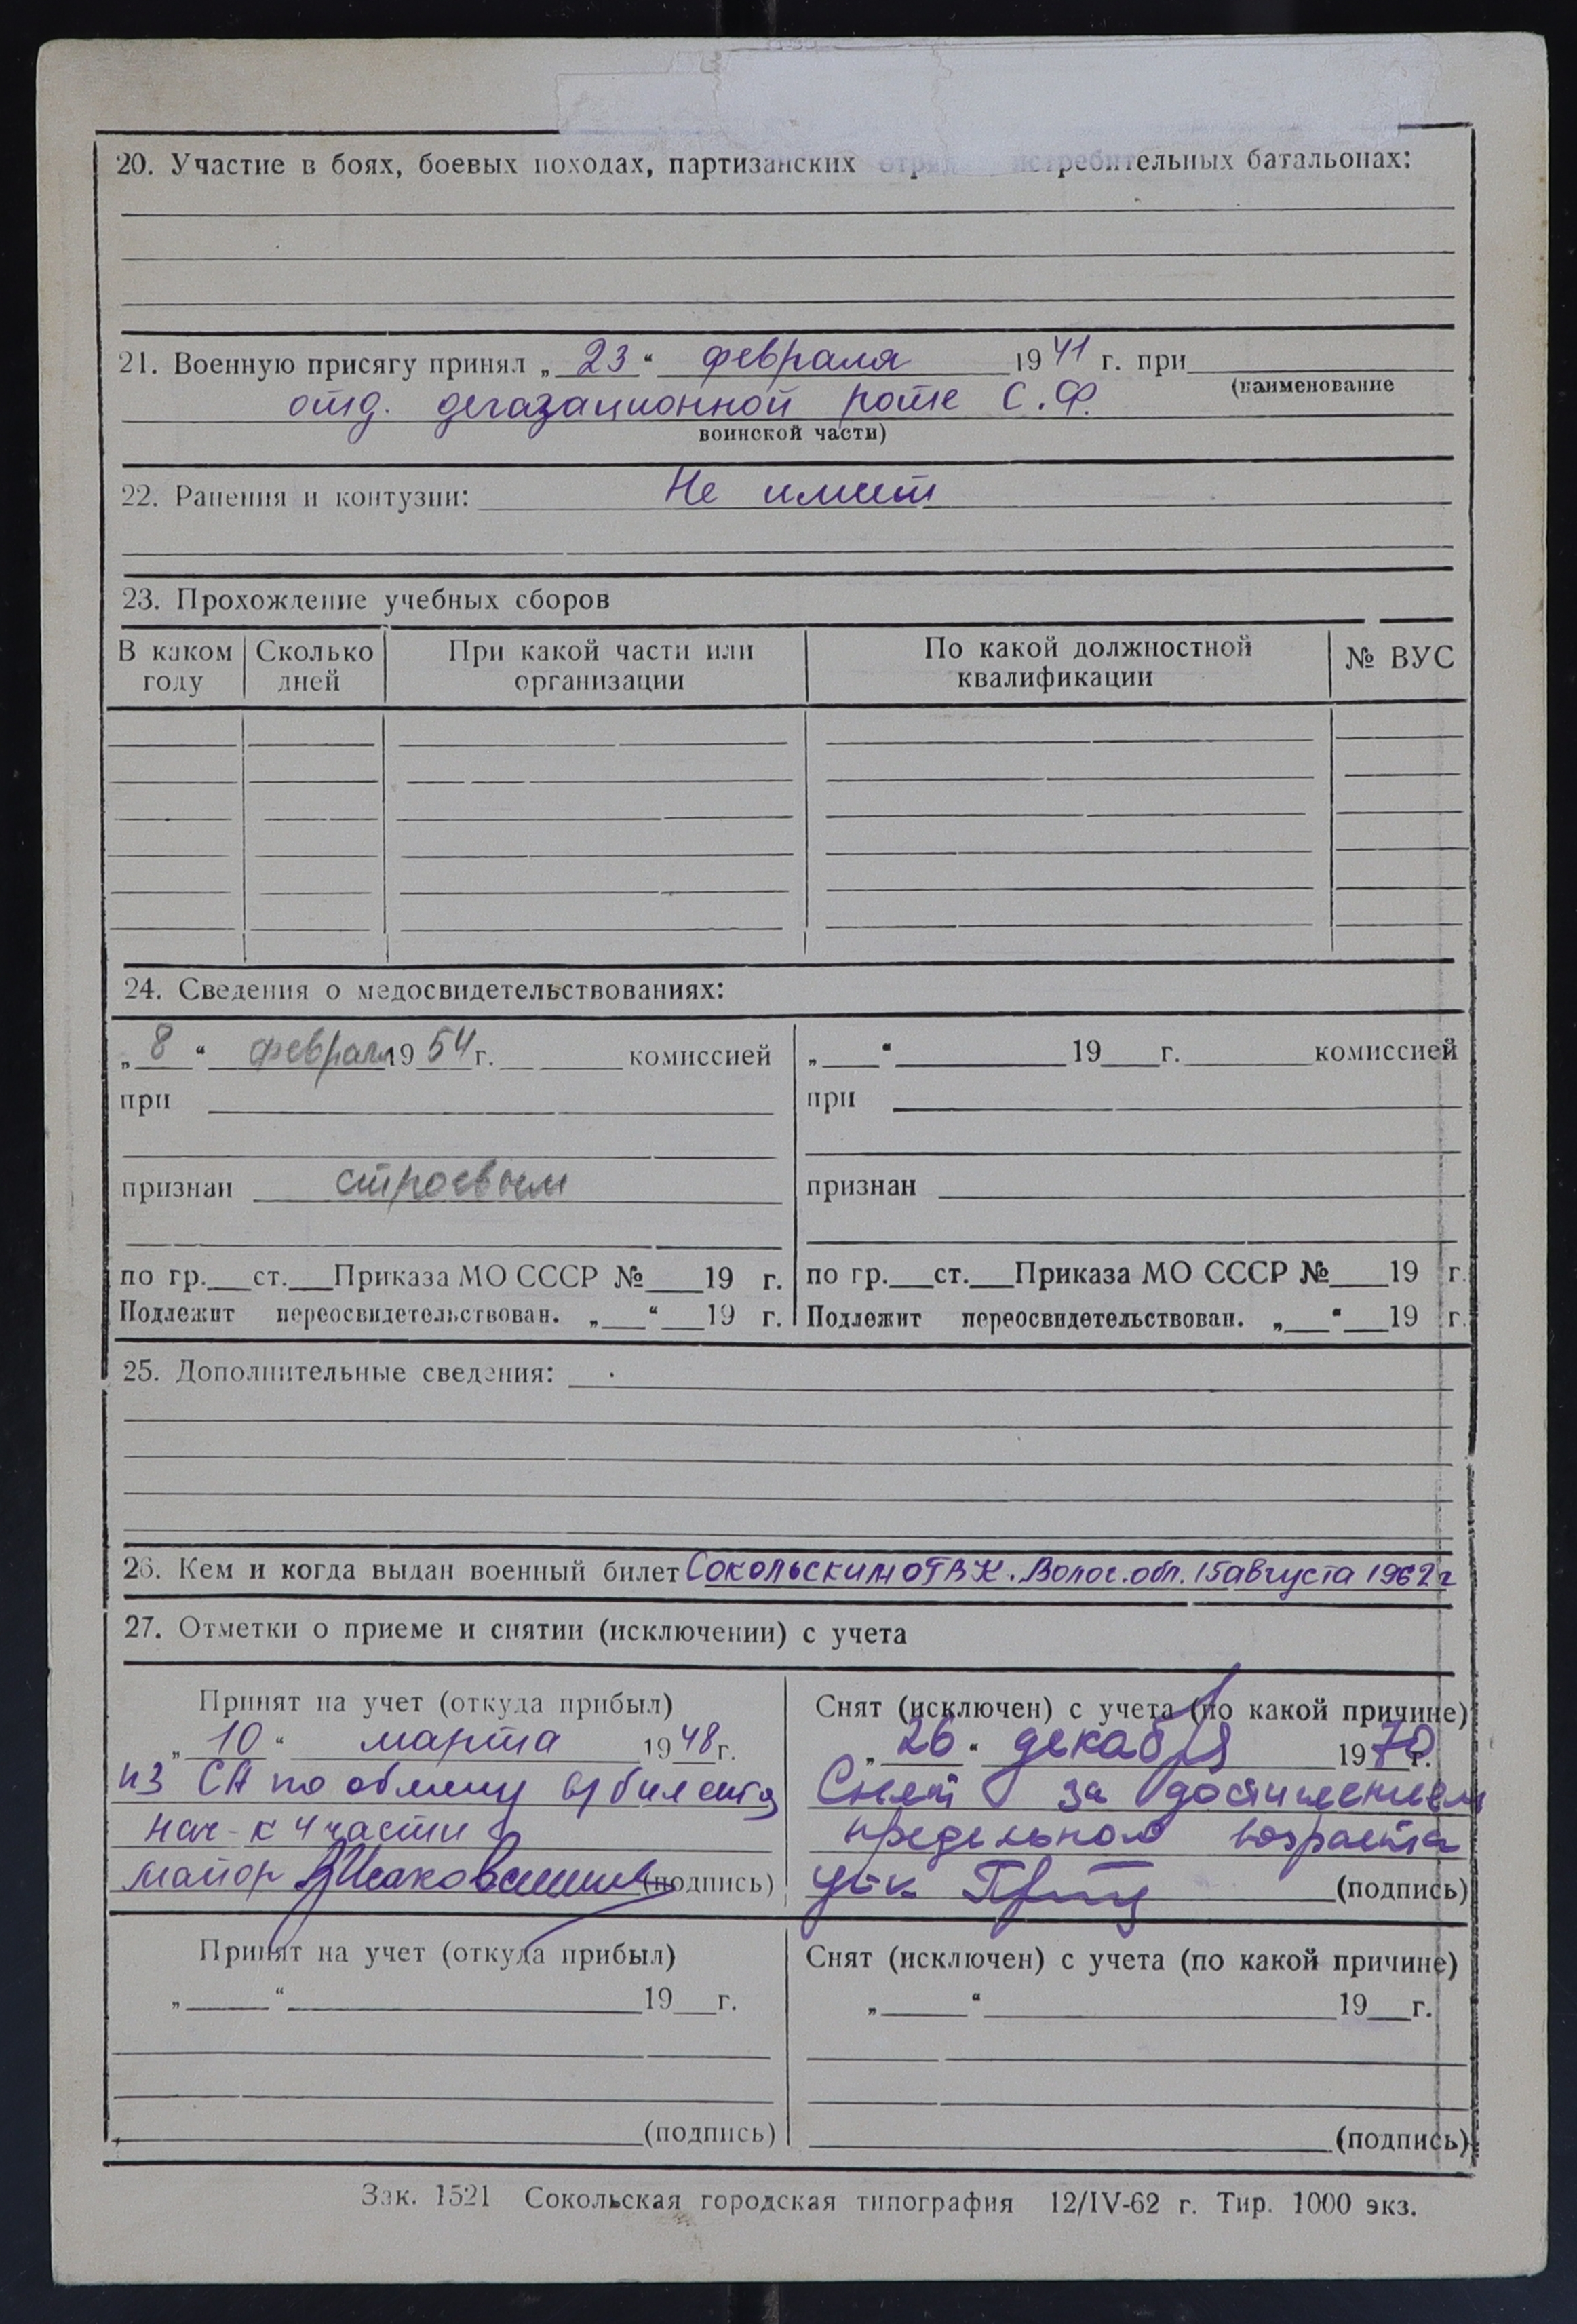 20. Участие в боях, боевых походах, партизанских отряд истребительных батальонах:
21. Военную присягу принял „23“ февраля 1941 г. при
(наименование
отд. дегазационной роте С.Ф.
воинской части)
22. Ранения и контузии: Не имеет
23. Прохождение учебных сборов
В каком году Сколько дней При какой части или организации По какой должностной квалификации № ВУС
24. Сведения о медосвидетельствованиях:
„8“ февраля 1954 г. комиссией
при
признан строевым
по гр. ст. Приказа МО СССР № 19 г.
Подлежит переосвидетельствован. „ “ 19 г.
„ “ 19 г. комиссией
при
признан
по гр. ст. Приказа МО СССР № 19 г.
Подлежит переосвидетельствован. „ “ 19 г.
25. Дополнительные сведения:
26. Кем и когда выдан военный билет Сокольским ОГВК. Волог. обл. 15 августа 1962 г
27. Отметки о приеме и снятии (исключении) с учета
Принят на учет (откуда прибыл)
„10“ марта 1948 г.
из СА по обмену в/билета
нач-к 4 части
майор (подпись)
Снят (исключен) с учета (по какой причине)
„26“ декабря 1970 г.
Снят за достижением
предельного возраста
(подпись)
Принят на учет (откуда прибыл)
„ “ 19 г.
(подпись)
Снят (исключен) с учета (по какой причине)
„ “ 19 г.
(подпись)
Зак. 1521 Сокольская городская типография 12/IV-62 г. Тир. 1000 экз.